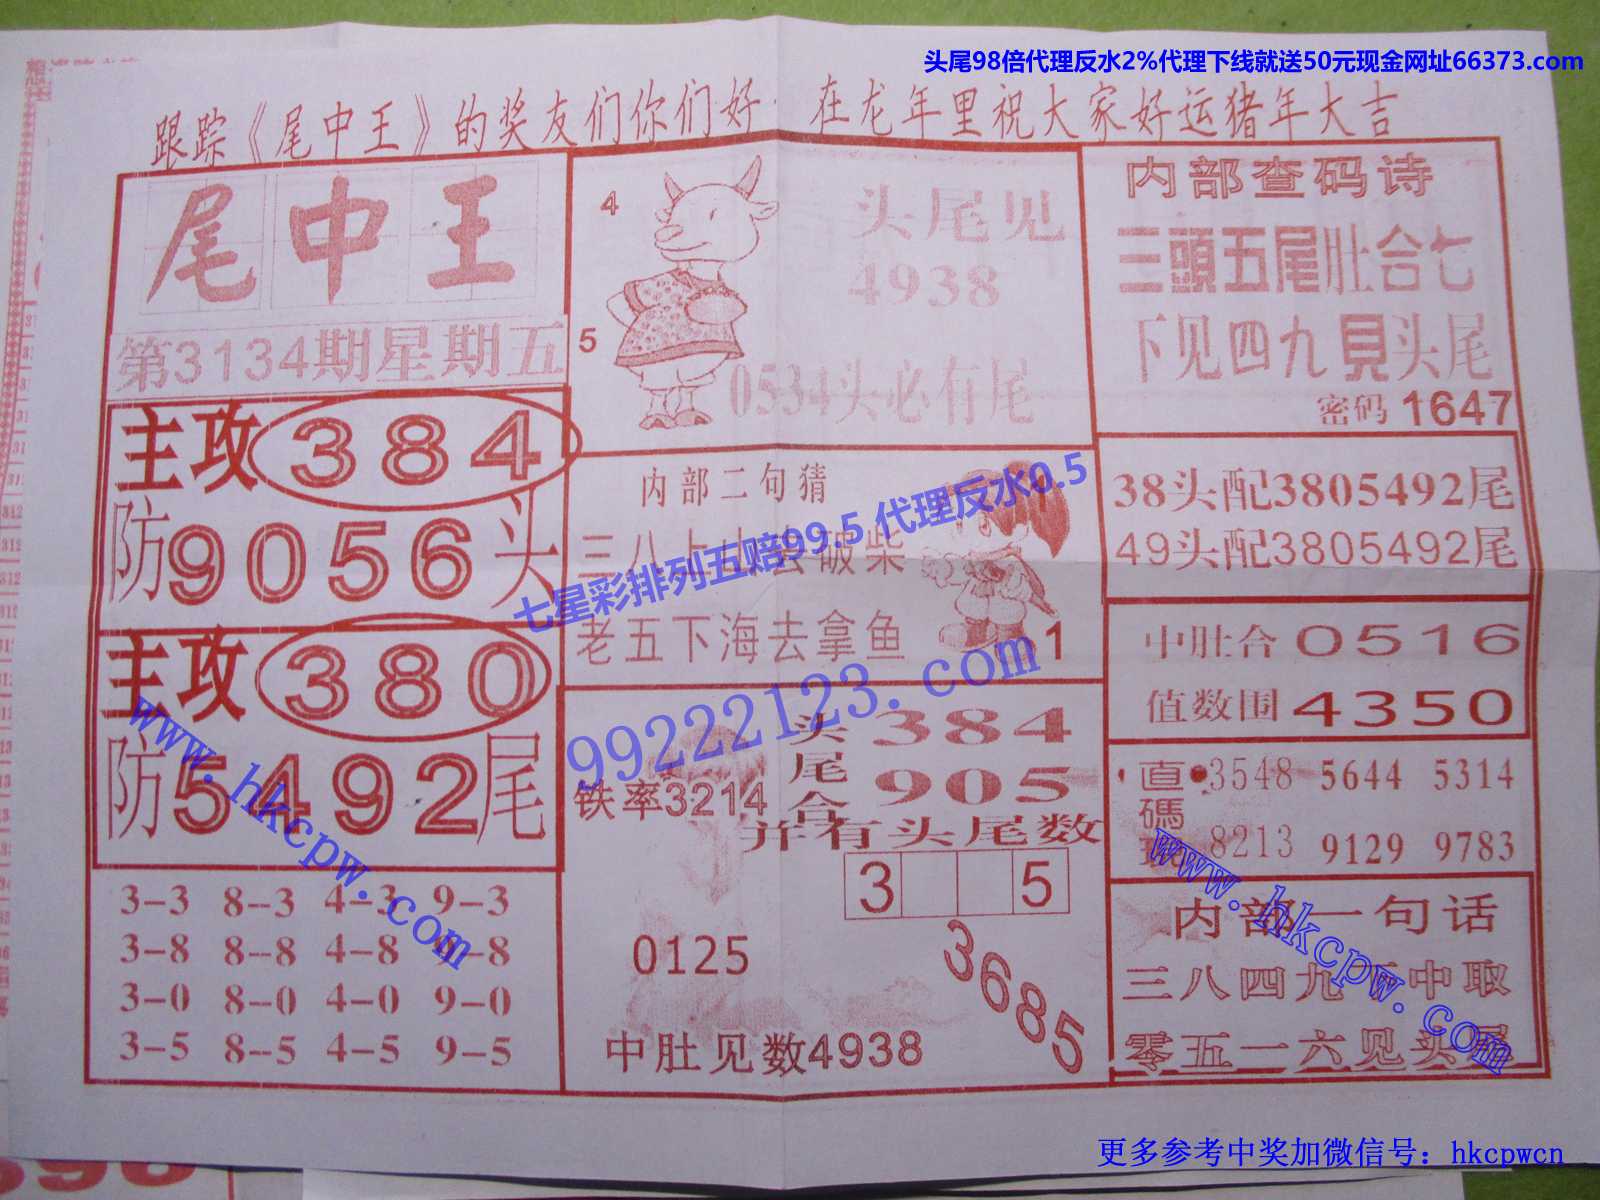 头尾98倍代理反水2%代理下线就送50元现金网址66373.com
跟踪《尾中王》的奖友们你们好 在龙年里祝大家好运猪年大吉
尾中王
第3134期星期五
主攻 384
防9056头
主攻 380
防5492尾
3-3 8-3 4-3 9-3
3-8 8-8 4-8 9-8
3-0 8-0 4-0 9-0
3-5 8-5 4-5 9-5
4
5
头尾见
4938
0534头必有尾
内部二句猜
三八上山去破柴
老五下海去拿鱼
1
七星彩排列五赔99.5 代理反水0.5
99222123.com
头尾合
384
905
铁率3214
并有头尾数
3 5
0125
3685
中肚见数4938
内部查码诗
三頭五尾肚合七
下见四九見头尾
密码 1647
38头配3805492尾
49头配3805492尾
中肚合 0516
值数围 4350
直碼
3548 5644 5314
8213 9129 9783
内部一句话
三八四九 中取
零五一六见头尾
www.hkcpw.com
www.hkcpw.com
更多参考中奖加微信号：hkcpwcn